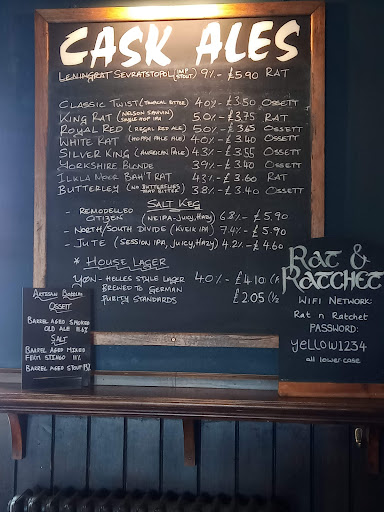 CASK ALES
LENINGRAT SEVRATSTOPOL (IMP STOUT) 9% - £5.90 RAT
CLASSIC TWIST (TROPICAL BITTER) 4.0% - £3.50 OSSETT
KING RAT (NELSON SAUVIN SINGLE HOP IPA) 5.0% - £3.75 RAT
ROYAL RED (REGAL RED ALE) 5.0% - £3.65 OSSETT
WHITE RAT (HOPPY PALE ALE) 4.0% - £3.40 OSSETT
SILVER KING (AMERICAN PALE ALE) 4.3% - £3.55 OSSETT
YORKSHIRE BLONDE 3.9% - £3.40 OSSETT
ILKLA MOOR BAH'T RAT 4.3% - £3.60 RAT
BUTTERLEY (NO BUTTERFLIES BITTER) 3.8% - £3.40 OSSETT
SALT KEG
- REMODELLED CITIZEN (NEIPA-JUICY, HAZY) 6.8% - £5.90
- NORTH/SOUTH DIVIDE (KVEIK IPA) 7.4% - £5.90
- JUTE (SESSION IPA, JUICY, HAZY) 4.2% - £4.60
* HOUSE LAGER
YØRN - HELLES STYLE LAGER 4.0% - £4.10
BREWED TO GERMAN
PURITY STANDARDS £2.05 (1/2
ARTISAN BOTTLES
OSSETT
BARREL AGED SMOKED
OLD ALE
SALT
BARREL AGED MIXED
FERM STINGO 11%
BARREL AGED STOUT
RAT &
RATCHET
WIFI NETWORK:
Rat n Ratchet
PASSWORD:
yellow1234
all lower-case